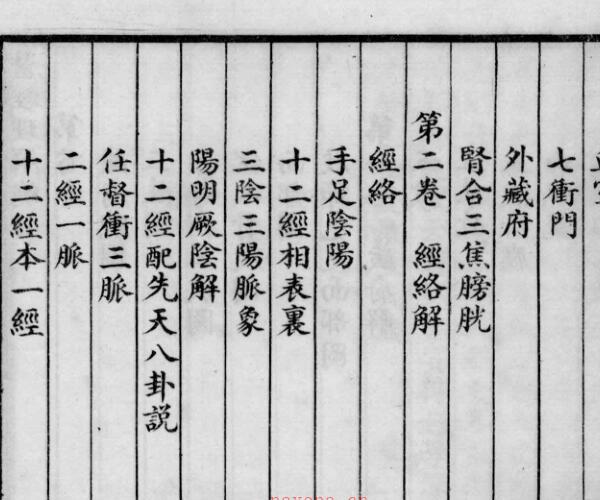 七衝門
外藏府
腎合三焦膀胱
第二卷 經絡解
經絡
手足陰陽
十二經相表裏
三陰三陽脈象
陽明厥陰解
十二經配先天八卦説
任督衝三脈
二經一脈
十二經本一經